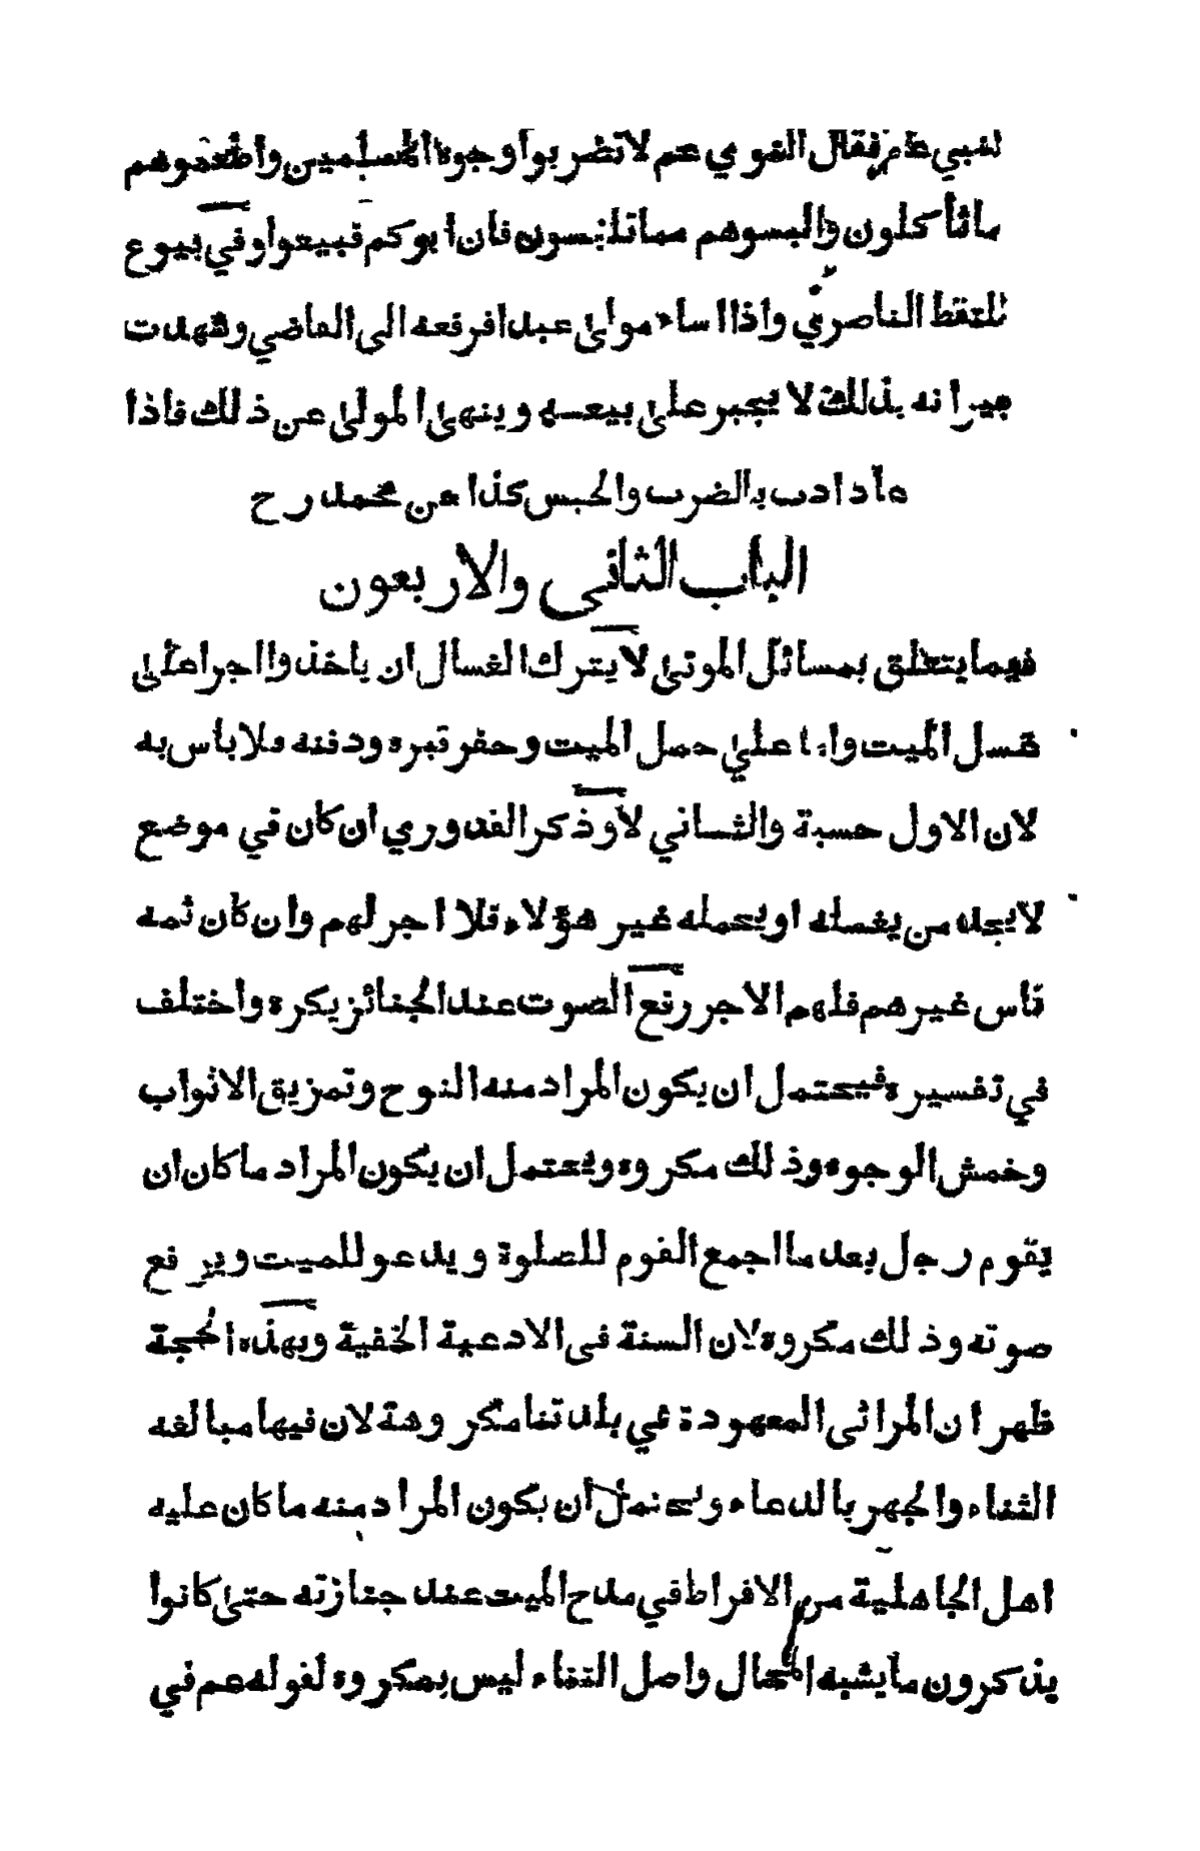 لنبي عم فقال النبي عم لا تضربوا وجوه المسلمين واطعموهم
ما تأكلون والبسوهم مما تلبسون فان ابوكم فبيعوا وفي بيوع
للتقط الناصري واذا اساء مولى عبدا فرفعه الى القاضي وشهدت
جيرانه بذلك لا يجبر على بيعه وينهى المولى عن ذلك فاذا
عاد ادب بالضرب والحبس كذا عن محمد رح
الباب الثاني والاربعون
فيما يتعلق بمسائل الموتى لا يترك الغسال ان ياخذوا اجرا على
غسل الميت واما على حمل الميت وحفر قبره ودفنه فلا باس به
لان الاول حسبة والثاني لا وذكر القدوري ان كان في موضع
لا يجد من يغسله او يحمله غير هؤلاء فلا اجر لهم وان كان ثمه
ناس غيرهم فلهم الاجر رفع الصوت عند الجنائز يكره واختلف
في تفسيره فيحتمل ان يكون المراد منه النوح وتمزيق الاثواب
وخمش الوجوه وذلك مكروه ويحتمل ان يكون المراد ما كان ان
يقوم رجل بعد ما اجمع القوم للصلوة ويدعو للميت ويرفع
صوته وذلك مكروه لان السنة في الادعية الخفية وبهذه الحجة
ظهر ان المراثي المعهودة في بلدتنا مكروهة لان فيها مبالغه
الثناء والجهر بالدعاء ويحتمل ان يكون المراد منه ما كان عليه
اهل الجاهلية من الافراط في مدح الميت عند جنازته حتى كانوا
يذكرون ما يشبه المحال واصل الثناء ليس بمكروه لقوله عم في